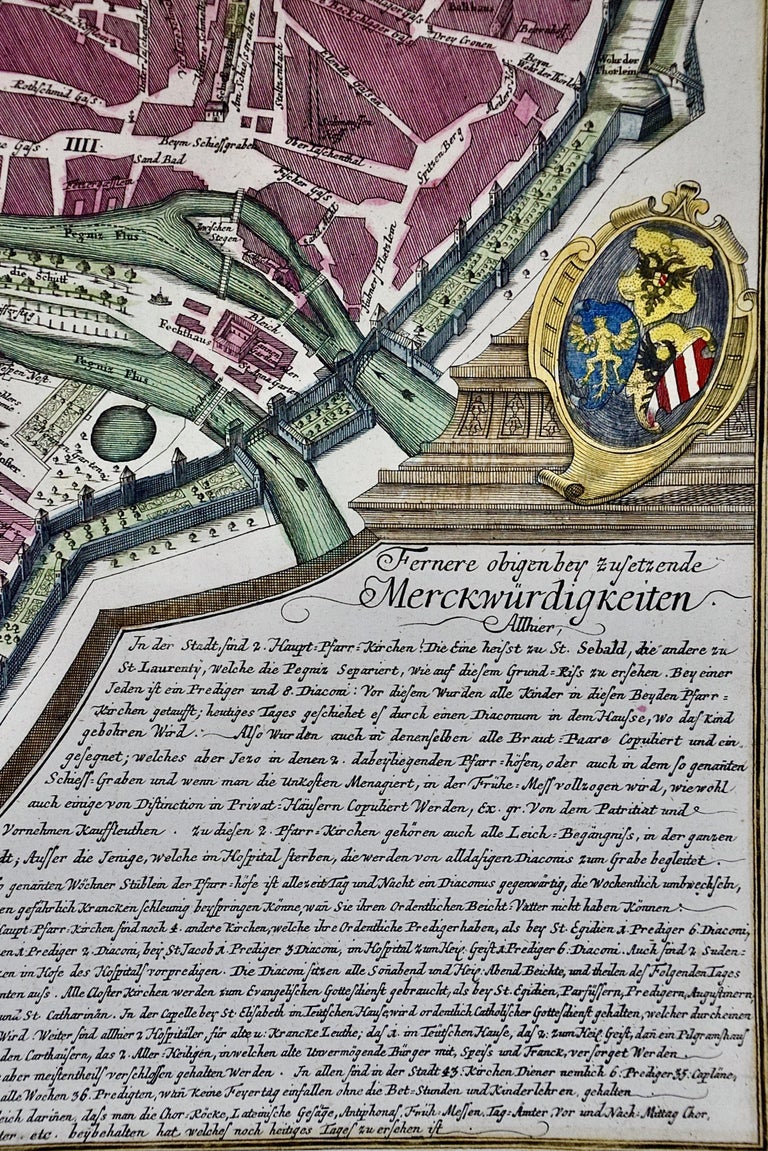 Ballhaus
Bauernhoff
Drey Cronen
Beym
Wohr der
Thorlein
Rothschmid Gass
Elende Gassen
Stultzenbach
IIII
Gass
Beym Schiessgraben
Sand Bad
Ober Taschenthal
Spitzen Berg
Fischer Gass
Hübners Pletzlein
Pegniz Flus
Zwischen
Stegen
die Schütt
Fechthaus
Bleich
Pegniz Flus
Garten
Fernere obigen bey zusetzende
Merckwürdigkeiten
Allhier,
In der Stadt, sind 2. Haupt-Pfarr-Kirchen! Die Eine heisst zu St. Sebald, die andere zu
St. Laurenty, welche die Pegniz Separiert, wie auf diesem Grund-Riss zu ersehen. Bey einer
Jeden ist ein Prediger und 8. Diaconi: Vor diesem Wurden alle Kinder in diesen Beyden Pfarr=
Kirchen getaufft; heutiges Tages geschiehet es durch einen Diaconum in dem Hausse, wo das Kind
gebohren Wird. Also Wurden auch in denenselben alle Braut-Paare Copuliert und ein-
gesegnet; welches aber Jezo in denen 2. dabeyliegenden Pfarr-höfen, oder auch in dem so genanten
Schiess-Graben und wenn man die Unkosten Menagiert, in der Frühe-Mess vollzogen wird, wiewohl
auch einige von Distinction in Privat-Häusern Copuliert Werden, Ex. gr. Von dem Patritiat und
Vornehmen Kauffleuthen. zu diesen 2. Pfarr-Kirchen gehören auch alle Leich-Begängniss, in der ganzen
dt; Ausser die Jenige, welche im Hospital sterben, die werden von alldasigen Diaconis zum Grabe begleitet.
o genanten Wöchner Stüblein der Pfarr-höfe ist allezeit Tag und Nacht ein Diaconus gegenwärtig, die Wochentlich umbwechseln,
en gefährlich Krancken schleunig beyspringen Könne, wañ Sie ihren Ordentlichen Beicht-Vatter nicht haben Können.
Haupt-Pfarr-Kirchen sind noch 4. andere Kirchen, welche ihre Ordentliche Prediger haben, als bey St. Egidien 1. Prediger 6. Diaconi,
en 1. Prediger 2. Diaconi, bey St. Jacob 1. Prediger 3 Diaconi, im Hospital zum Heil. Geist 1. Prediger 6. Diaconi. Auch sind 2 Suden-
zen im Hofe des Hospitals vorpredigen. Die Diaconi sitzen alle Soñabend und Heil. Abend Beichte, und theilen des Folgenden Tages
nten auss. Alle Closter Kirchen werden zum Evangelischen Gottesdienst gebraucht, als bey St. Egidien, Parfüssern, Predigern, Augustinern
und St. Catharinän. In der Capelle bey St. Elisabeth im Teütschen Hause, wird ordentlich Catholischer Gottesdienst gehalten, welcher durch einen
Wird. Weiter sind allhier 2 Hospitäler, für alte u. Krancke Leuthe; das 1. im Teütschen Hause, das 2. zum Heil. Geist, dañ ein Pilgramshaus
den Carthäusern, das 2. Aller-Heiligen, in welchen alte Unvermögende Bürger mit, Speiss und Tranck, versorget Werden
aber meistentheils verschlossen gehalten Werden. In allen sind in der Stadt 43. Kirchen Diener nemlich 6. Prediger 35. Capläne,
alle Wochen 36. Predigten, wañ Keine Feyertag einfallen ohne die Bet-Stunden und Kinderlehren, gehalten
eich dariñen, dass man die Chor-Röcke, Lateinische Gesäge, Antiphonas, Früh Messen, Tag-Ämter, Vor und Nach-Mittag Chor,
ter. etc. beybehalten hat welches noch heitiges Tages zu ersehen ist